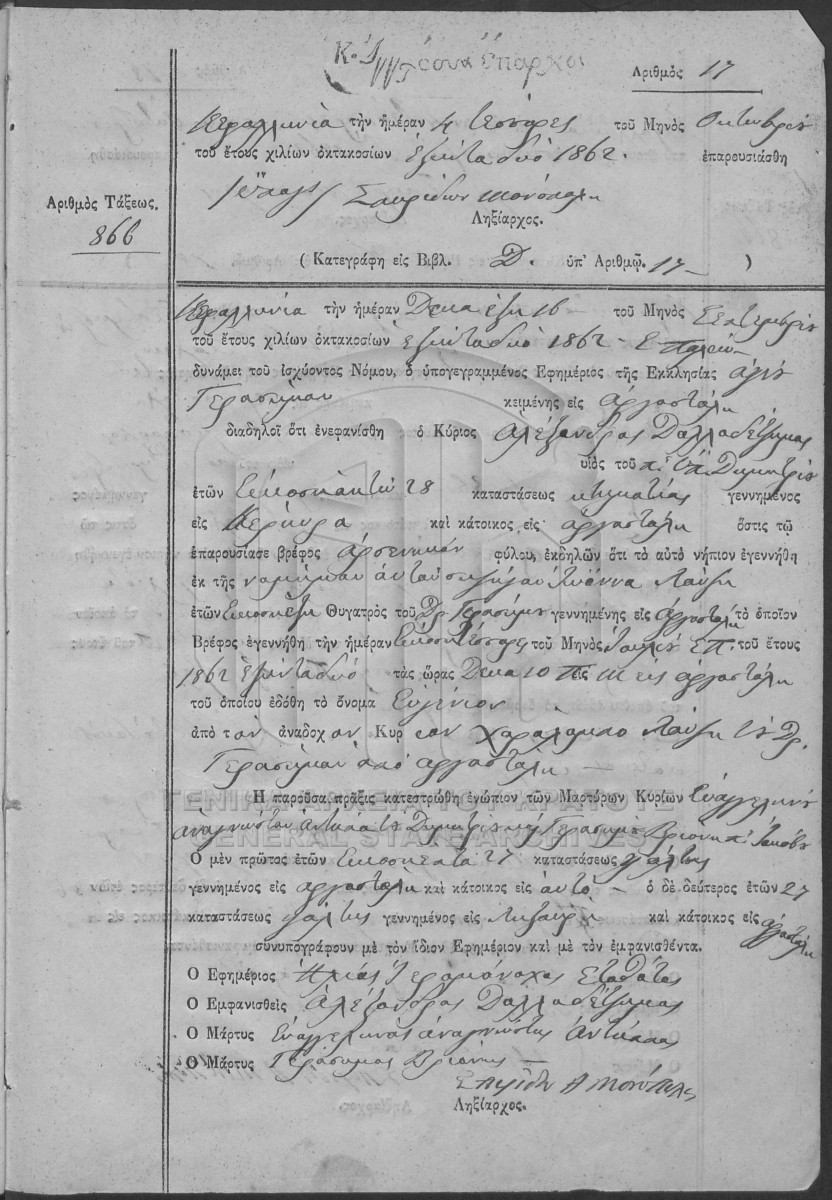 Ἀριθμὸς 17
Κεφαλληνία τὴν ἡμέραν 4 τέσσαρες τοῦ Μηνὸς Ὀκτωβρίου
τοῦ ἔτους χιλίων ὀκτακοσίων ἑξῆντα δυὸ 1862. ἐπαρουσιάσθη
Σπυρίδων
Ληξίαρχος.
Ἀριθμὸς Τάξεως.
866
( Κατεγράφη εἰς Βιβλ. Δ. ὑπ' Ἀριθμῷ. 17 )
Κεφαλληνία τὴν ἡμέραν Δέκα ἕξη 16 τοῦ Μηνὸς Σεπτεμβρίου
τοῦ ἔτους χιλίων ὀκτακοσίων ἑξῆντα δυὸ 1862 - Ε. Παλαιὸν
δυνάμει τοῦ ἰσχύοντος Νόμου, ὁ ὑπογεγραμμένος Ἐφημέριος τῆς Ἐκκλησίας ἁγίου
Γερασίμου κειμένης εἰς Ἀργοστόλι
διαδηλοῖ ὅτι ἐνεφανίσθη ὁ Κύριος Ἀλέξανδρος Δαλλαδέτζιμας
υἱὸς τοῦ π. Δημητρίου
ἐτῶν εἰκοσιοκτὼ 28 καταστάσεως κτηματίας γεννημένος
εἰς Κέρκυρα καὶ κάτοικος εἰς Ἀργοστόλι ὅστις τῷ
ἐπαρουσίασε βρέφος ἀρσενικὸν φύλου, ἐκδηλῶν ὅτι τὸ αὐτὸ νήπιον ἐγεννήθη
ἐκ τῆς νομίμου αὐτοῦ συζύγου Ἰωάννα
ἐτῶν εἰκοσιέξη Θυγατρὸς τοῦ Δρ. Γερασίμου γεννημένης εἰς Ἀργοστόλι τὸ ὁποῖον
Βρέφος ἐγεννήθη τὴν ἡμέραν εἰκοσιτέσσαρες τοῦ Μηνὸς Ἰουλίου Ε.Π. τοῦ ἔτους
1862 ἑξῆντα δυὸ τὰς ὥρας Δέκα 10 εἰς Ἀργοστόλι
τοῦ ὁποίου ἐδόθη τὸ ὄνομα Εὐγένιον
ἀπὸ τὸν ἀναδοχον Κυρ ιον Χαράλαμπο τοῦ Δρ.
Γερασίμου ἀπὸ Ἀργοστόλι
ΓΕΝΙΚΑ ΑΡΧΕΙΑ ΤΟΥ ΚΡΑΤΟΥΣ
Ἡ παροῦσα πρᾶξις κατεστρώθη ἐνώπιον τῶν Μαρτύρων Κυρίων Εὐαγγελινοῦ
ἀναγνώστου Ἀντίππα τοῦ Δημητρίου καὶ Γερασίμου Βριόνη π. Ἰακώβου
GENERAL STATE ARCHIVES
Ὁ μὲν πρῶτος ἐτῶν εἰκοσιεπτὰ 27 καταστάσεως ψάλτης
γεννημένος εἰς Ἀργοστόλι καὶ κάτοικος εἰς αὐτὸ ὁ δὲ δεύτερος ἐτῶν 27
καταστάσεως ψάλτης γεννημένος εἰς Ληξούρι καὶ κάτοικος εἰς Ἀργοστόλι
συνυπογράφουν μὲ τὸν ἴδιον Ἐφημέριον καὶ μὲ τὸν ἐμφανισθέντα.
Ὁ Ἐφημέριος Ἠλίας Ἱερομόναχος
Ὁ Ἐμφανισθεὶς Ἀλέξανδρος Δαλλαδέτζιμας
Ὁ Μάρτυς Εὐαγγελινὸς ἀναγνώστης Ἀντίππας
Ὁ Μάρτυς Γεράσιμος Βριόνης
Ληξίαρχος.